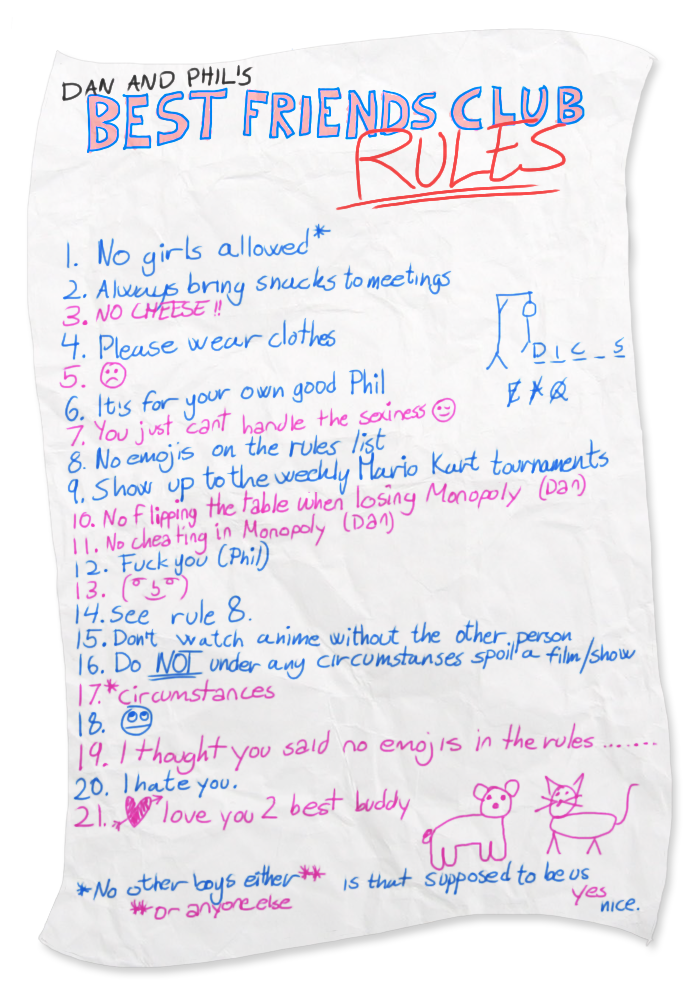 DAN AND PHIL'S
BEST FRIENDS CLUB
RULES
1. No girls allowed*
2. Always bring snacks to meetings
3. NO CHEESE!!
4. Please wear clothes
5. ☹
6. It's for your own good Phil
7. You just cant handle the sexiness 😏
8. No emojis on the rules list
9. Show up to the weekly Mario Kart tournaments
10. No flipping the table when losing Monopoly (Dan)
11. No cheating in Monopoly (Dan)
12. Fuck you (Phil)
13. ( ͡° ͜ʖ ͡°)
14. See rule 8.
15. Don't watch anime without the other person
16. Do NOT under any circumstanses spoil a film/show
17. *circumstances
18. 🙄
19. I thought you said no emojis in the rules ........
20. I hate you.
21. love you 2 best buddy
D I C _ S
E X Q
*No other boys either** is that supposed to be us
**or anyone else yes
nice.